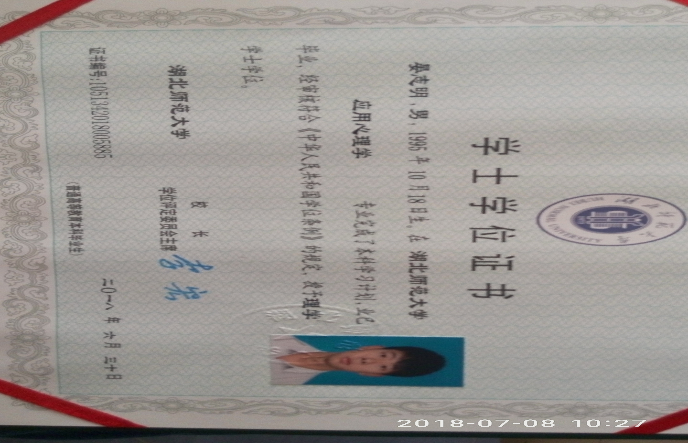 学士学位证书
晏克明，男，1995年10月18日生。在 湖北师范大学
应用心理学 专业完成了本科学习计划，业已
毕业，经审核符合《中华人民共和国学位条例》的规定，授予理学
学士学位。
湖北师范大学
校 长
学位评定委员会主席
证书编号:1051342018006885
二〇一八 年 六 月 三十 日
(普通高等教育本科毕业生)
2018-07-08 10:27